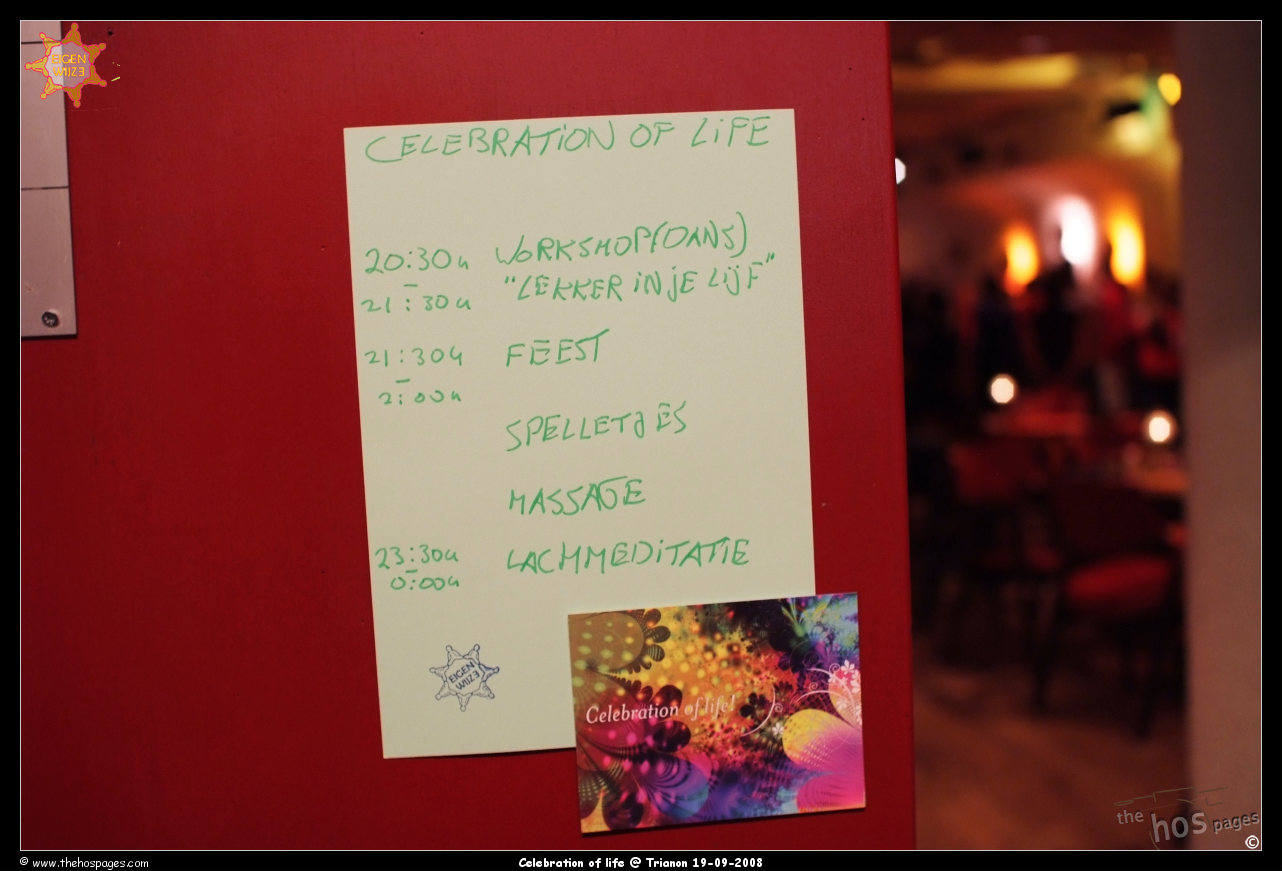 EIGEN
WIJZE
CELEBRATION OF LIFE
20:30u WORKSHOP(DANS)
– "LEKKER IN JE LIJF"
21:30u
21:30u FEEST
–
2:00u
SPELLETJES
MASSAGE
23:30u LACHMEDITATIE
–
0:00u
EIGEN
WIJZE
Celebration of life!
the hos pages
©
© www.thehospages.com
Celebration of life @ Trianon 19-09-2008